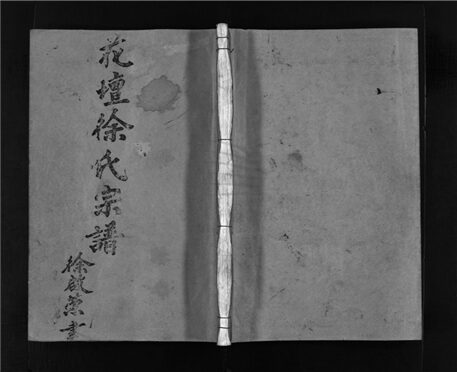 花壇徐氏宗譜
徐啟書